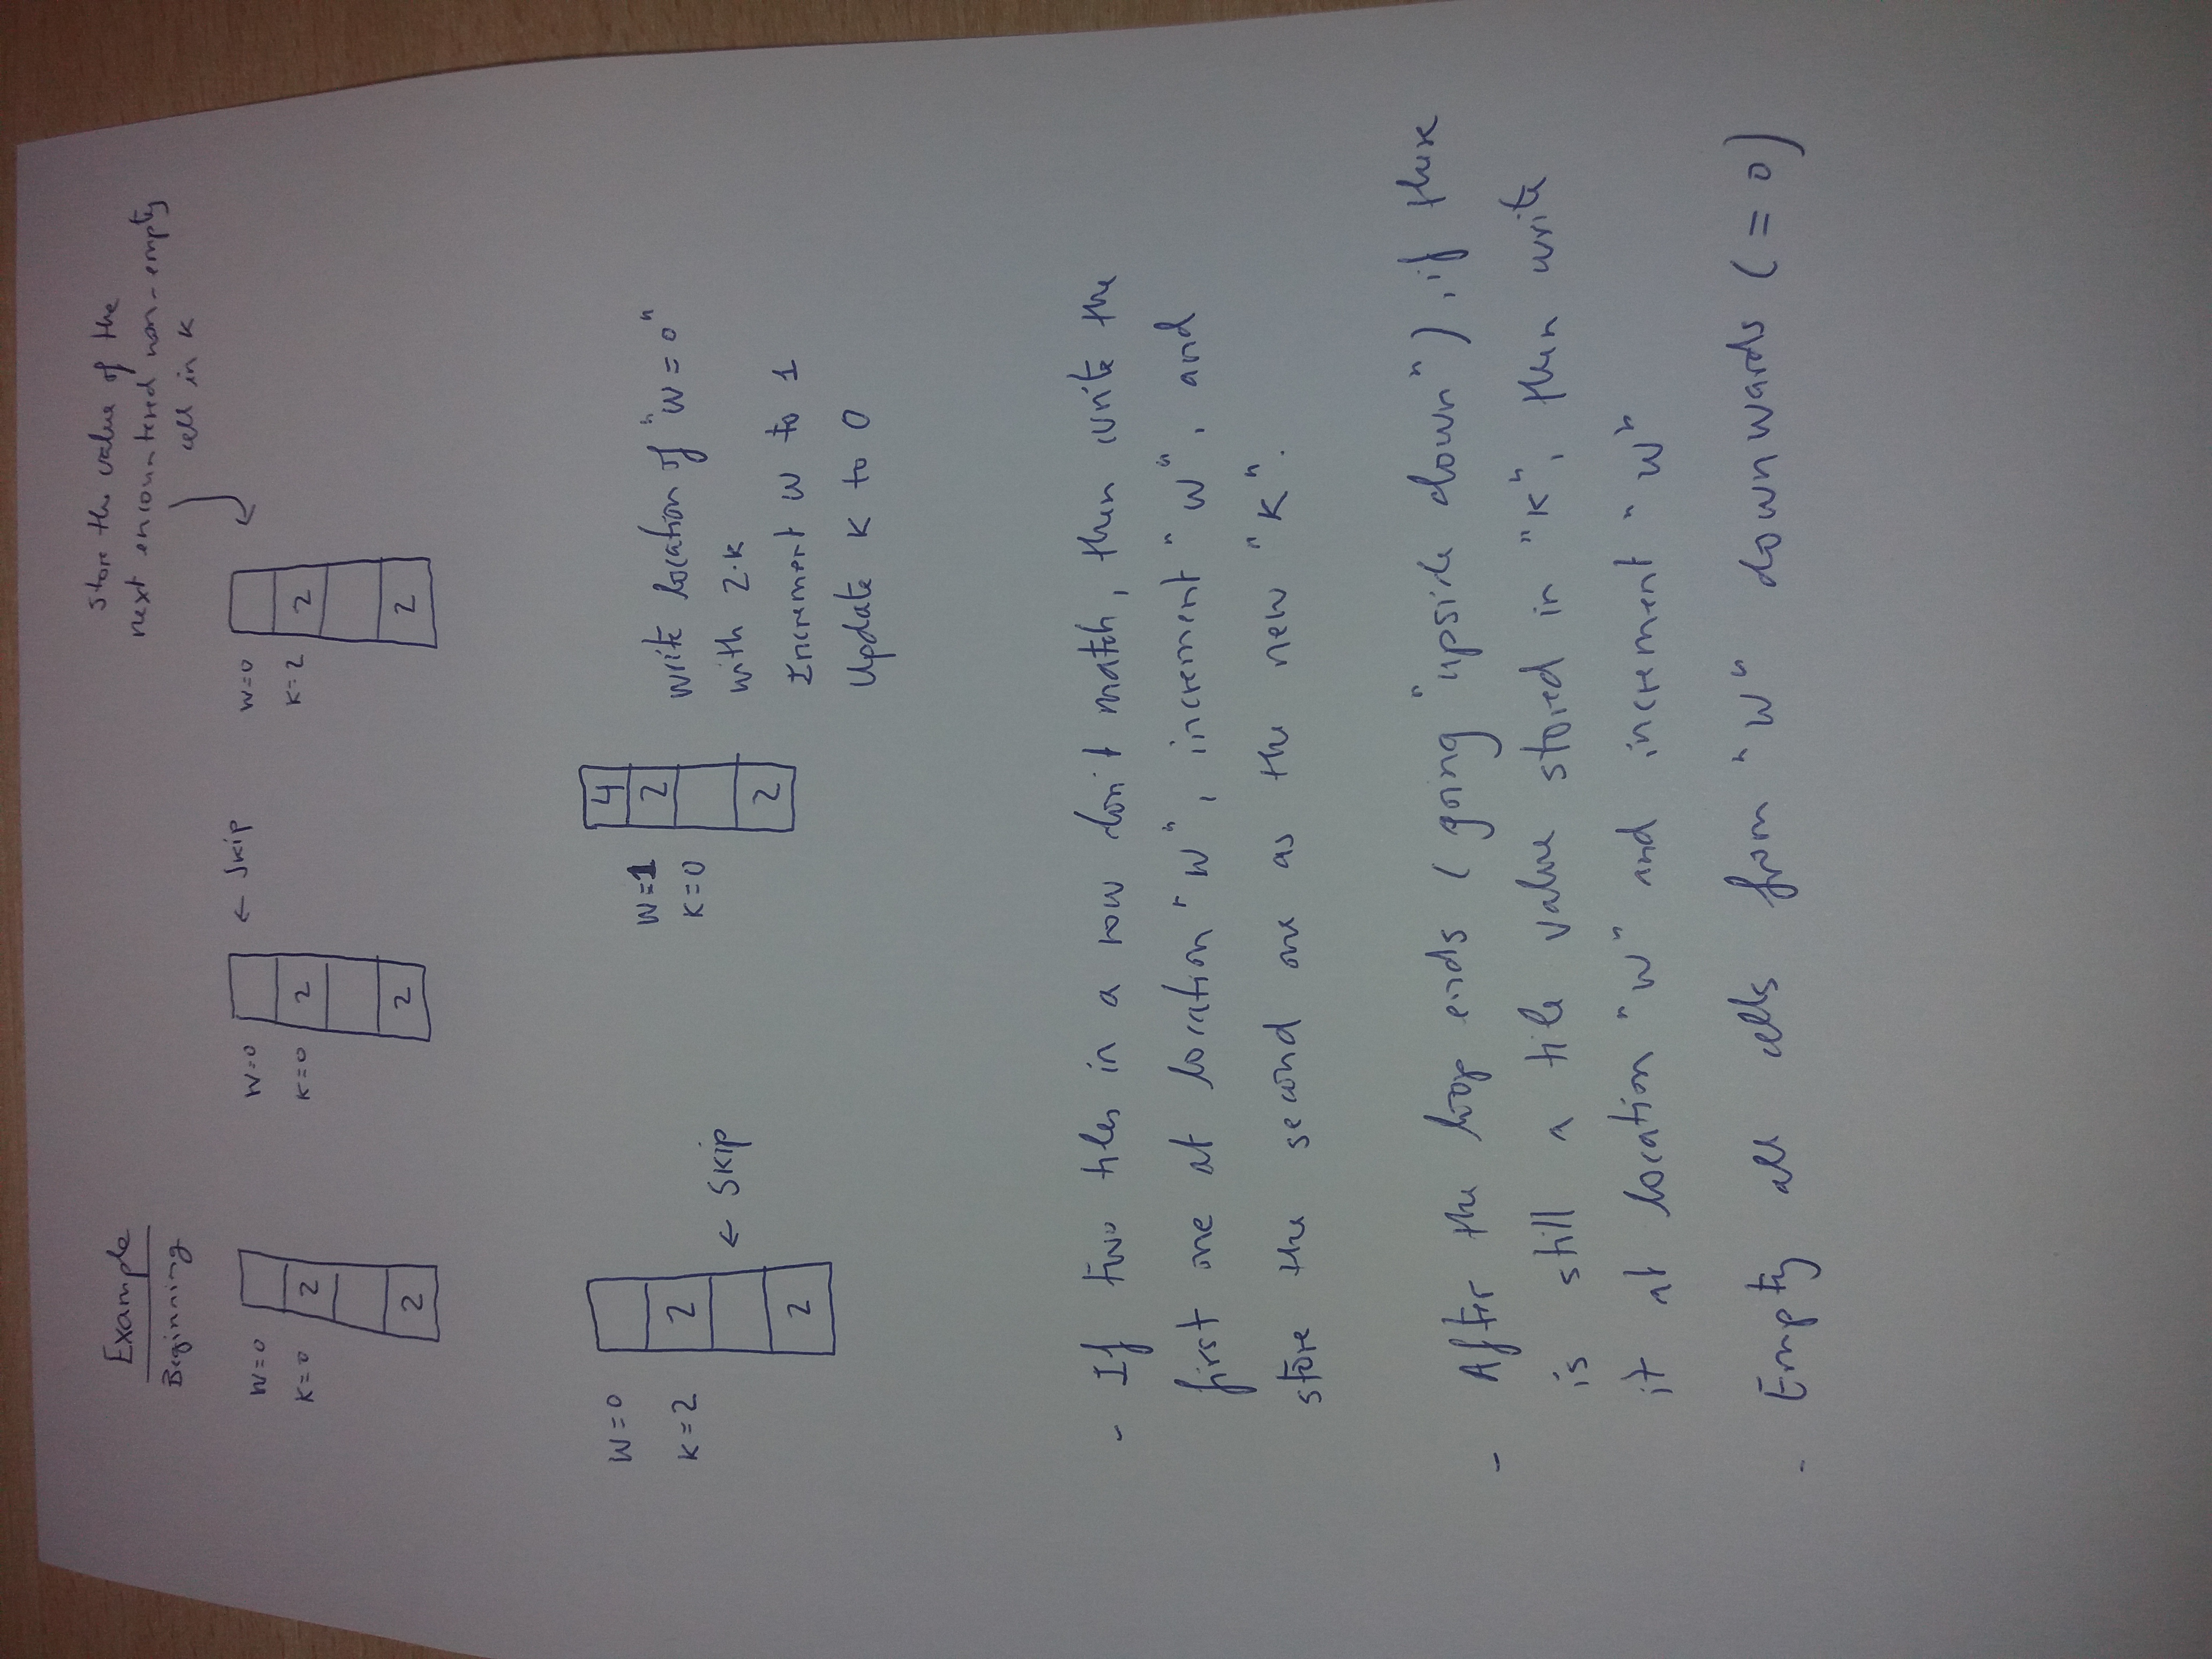 Example
Beginning
store the value of the
next encountered non-empty
cell in K
W=0
K=0
2
2
W=0
K=0
2
2
← Skip
W=0
K=2
2
2
W=0
K=2
2
2
← Skip
W=1
K=0
4
2
2
write location of "W=0"
with 2·K
Increment W to 1
Update K to 0
- If two tiles in a row don't match, then write the
first one at location "W", increment "W", and
store the second one as the new "K".
- After the loop ends (going "upside down"), if there
is still a tile value stored in "K", then write
it at location "W" and increment "W"
- Empty all cells from "W" downwards (=0)